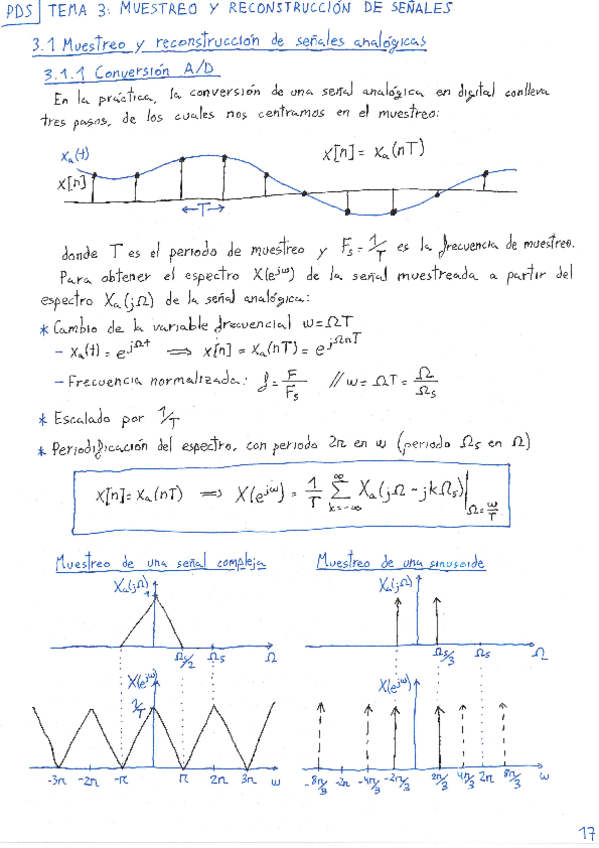 PDS TEMA 3: MUESTREO Y RECONSTRUCCIÓN DE SEÑALES
3.1 Muestreo y reconstrucción de señales analógicas
3.1.1 Conversión A/D
En la práctica, la conversión de una señal analógica en digital conlleva
tres pasos, de los cuales nos centramos en el muestreo:
xa(t)
x[n] = xa(nT)
x[n]
T
donde T es el periodo de muestreo y Fs = 1/T es la frecuencia de muestreo.
Para obtener el espectro X(e^jω) de la señal muestreada a partir del
espectro Xa(jΩ) de la señal analógica:
* Cambio de la variable frecuencial ω = ΩT
- xa(t) = e^jΩt ⟹ x[n] = xa(nT) = e^jΩnT
- Frecuencia normalizada: f = F/Fs // ω = ΩT = Ω/Ωs
* Escalado por 1/T
* Periodificación del espectro, con periodo 2π en ω (periodo Ωs en Ω)
x[n] = xa(nT) ⟹ X(e^jω) = 1/T ∑ k=-∞ ∞ Xa(jΩ - jkΩs)|Ω=ω/T
Muestreo de una señal compleja Muestreo de una sinusoide
Xa(jΩ) Xa(jΩ)
1
Ωs/2 Ωs Ω Ωs/3 Ωs Ω
X(e^jω) X(e^jω)
1/T
-3π -2π -π π 2π 3π ω -8π/3 -2π -4π/3 -2π/3 2π/3 4π/3 2π 8π/3 ω
17